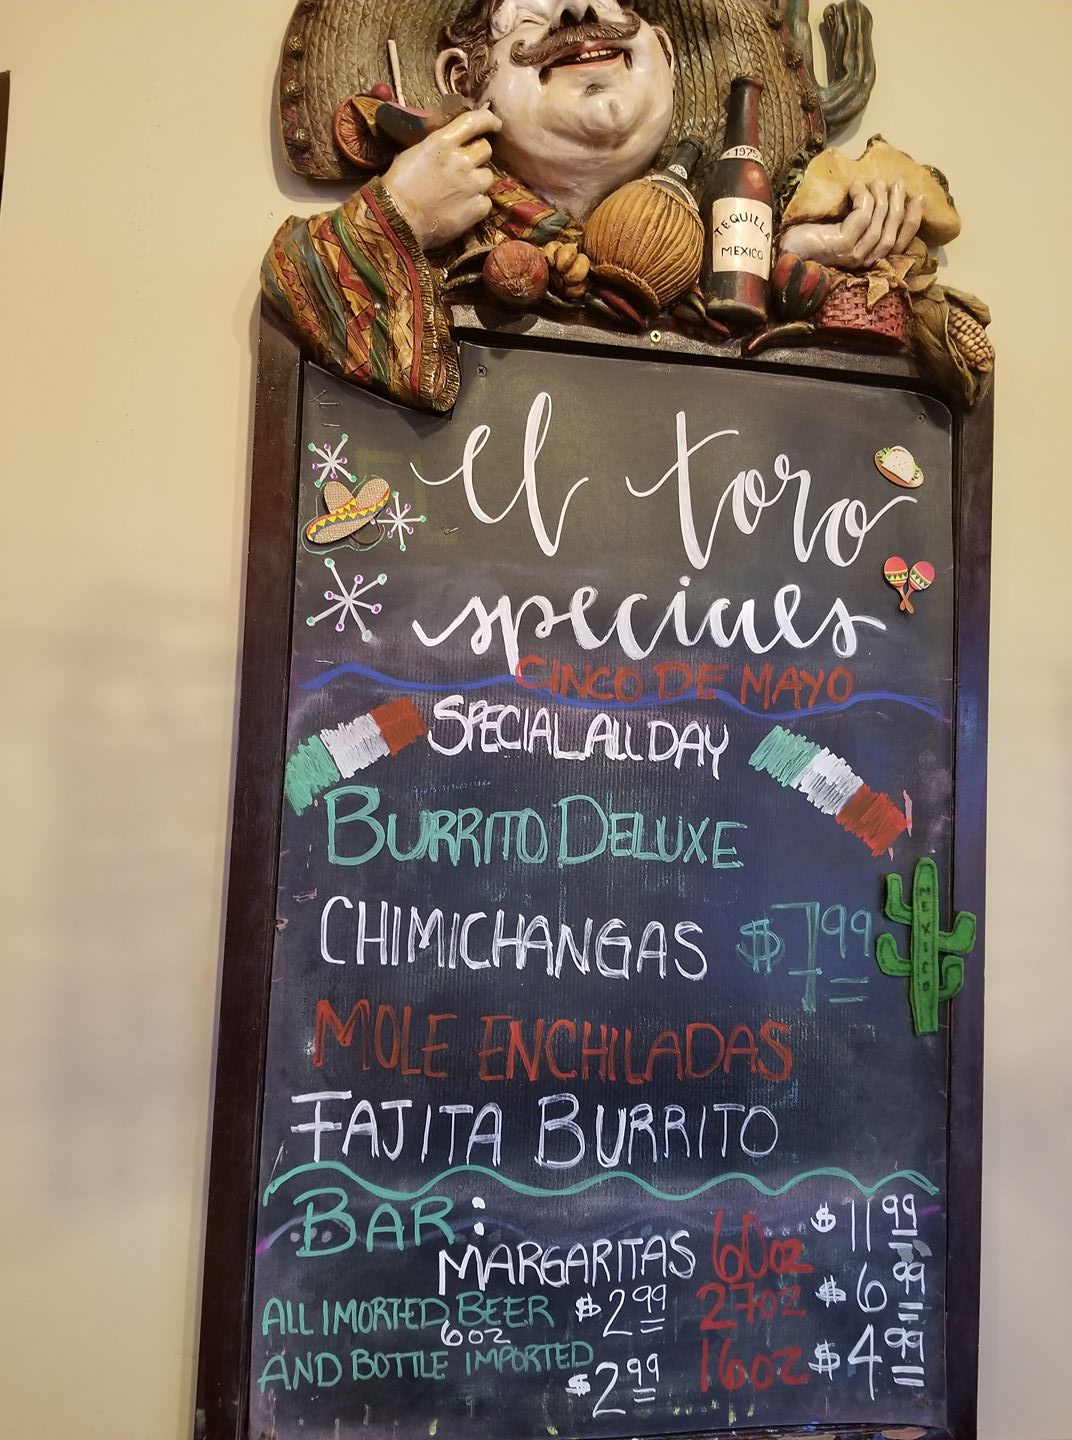 1975
TEQUILLA
MEXICO
el toro
specials
CINCO DE MAYO
SPECIAL ALL DAY
BURRITO DELUXE
CHIMICHANGAS $7.99
MEXICO
MOLE ENCHILADAS
FAJITA BURRITO
BAR:
MARGARITAS 60oz $11.99
ALL IMORTED BEER $2.99 27oz $6.99
6oz
AND BOTTLE IMPORTED $2.99 16oz $4.99